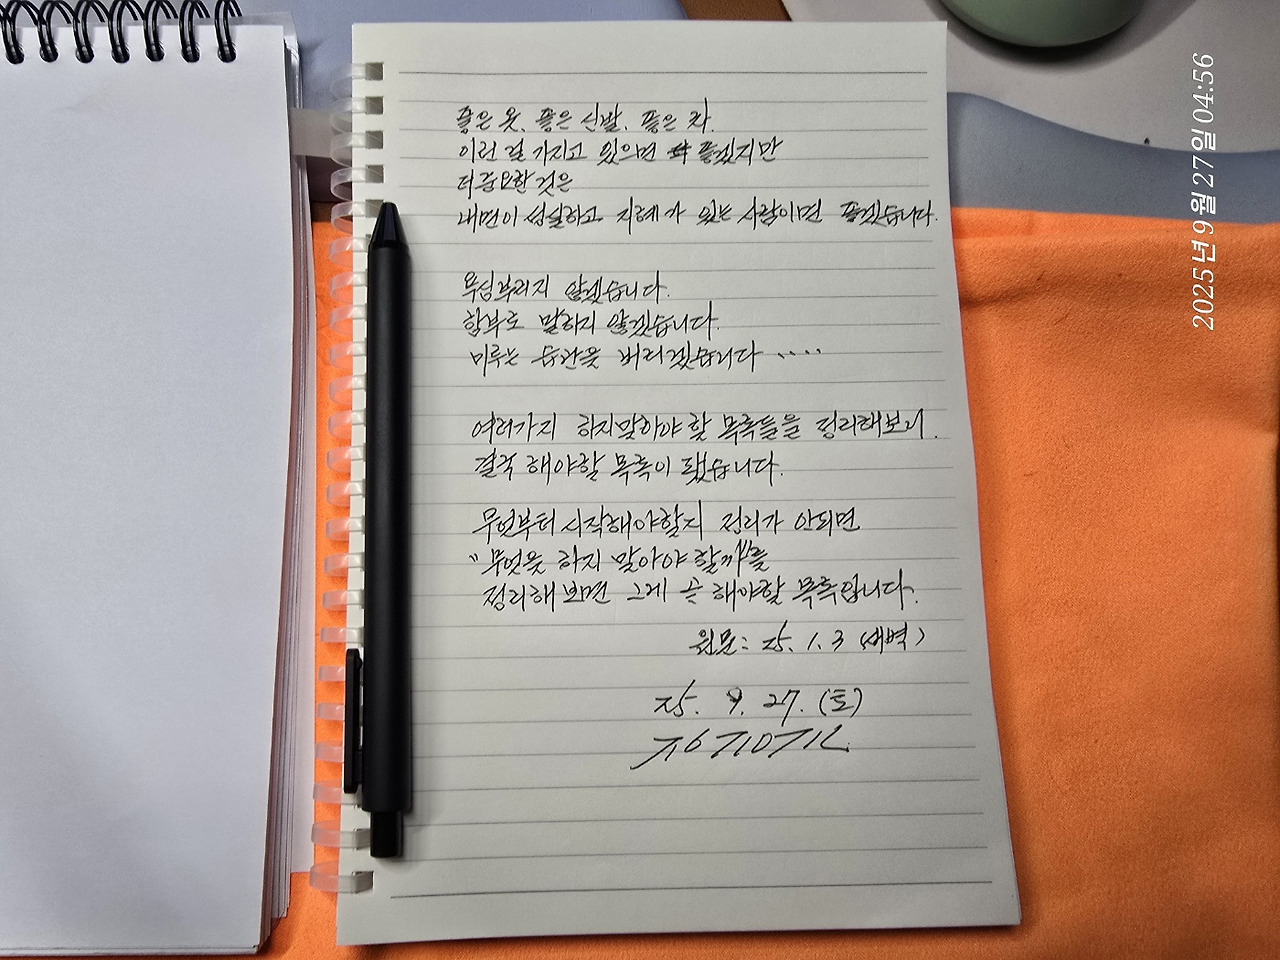 좋은 옷, 좋은 신발, 좋은 차.
이런 걸 가지고 있으면 좋겠지만
더 중요한 것은
내면이 성실하고 지혜가 있는 사람이면 좋겠습니다.
욕심부리지 않겠습니다.
함부로 말하지 않겠습니다.
미루는 습관을 버리겠습니다 ....
여러가지 하지말아야 할 목록들을 정리해보니.
결국 해야할 목록이 됐습니다.
무엇부터 시작해야할지 정리가 안되면
"무엇을 하지 말아야 할까"를
정리해 보면 그게 곧 해야할 목록입니다.
원문: 25. 1. 3 (새벽)
25. 9. 27. (토)
2025년 9월 27일 04:56